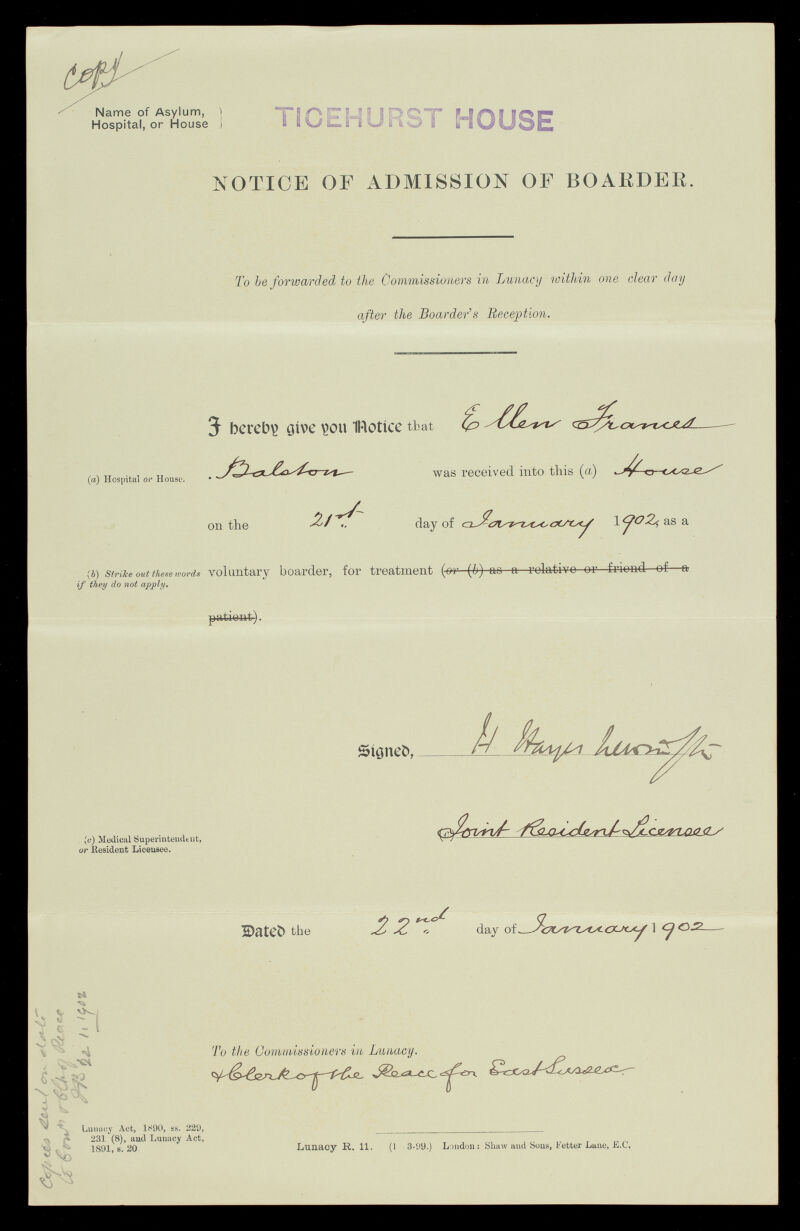 Copy
Name of Asylum,
Hospital, or House
TICEHURST HOUSE
NOTICE OF ADMISSION OF BOARDER.
To be forwarded to the Commissioners in Lunacy within one clear day
after the Boarder's Reception.
I hereby give you Notice that Ellen Frances
(a) Hospital or House.
Balston was received into this (a) House
on the 21st day of January 1902, as a
(b) Strike out these words
if they do not apply.
voluntary boarder, for treatment (or (b) as a relative or friend of a
patient).
Signed, H Hayes Newington
(c) Medical Superintendent,
or Resident Licensee.
Joint Resident Licensee
Dated the 22nd day of January 1902
Copies sent on date
to Comrs & Clk of Peace
22 1 1902
To the Commissioners in Lunacy.
& Clerk of the Peace for East Sussex
Lunacy Act, 1890, ss. 229,
231 (8), and Lunacy Act,
1891, s. 20
Lunacy R. 11. (1 3-99.) London: Shaw and Sons, Fetter Lane, E.C.